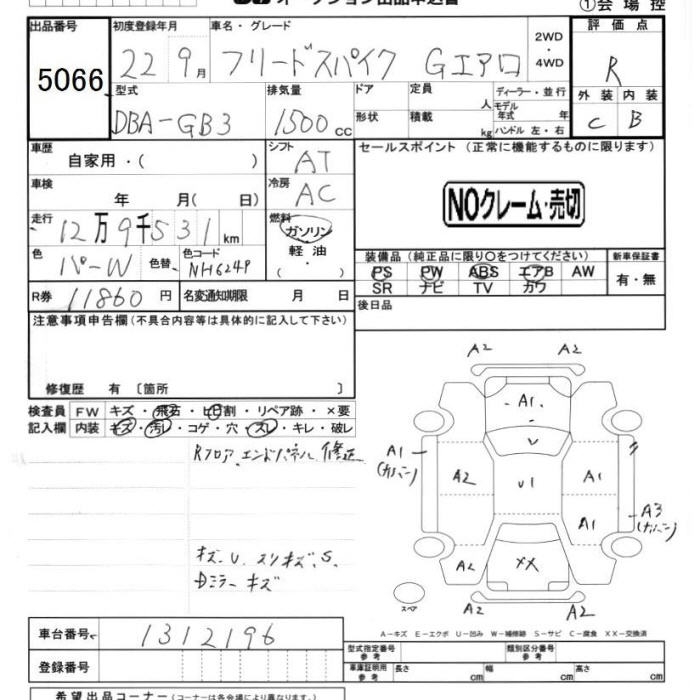 オークション出品申込書
①会場控
出品番号 初度登録年月 車名・グレード 2WD・4WD 評価点
5066 22 9月 フリードスパイク Gエアロ R
型式 排気量 ドア 定員 人 ディーラー・並行 外装 内装
DBA-GB3 1500cc 形状 積載 kg モデル年式 年 ハンドル 左・右 C B
車歴 自家用・( ) シフト AT セールスポイント (正常に機能するものに限ります)
車検 年 月( 日) 冷房 AC
NOクレーム・売切
走行 12万9千531km 燃料 ガソリン 軽油 ( )
色 パーW 色替 色コード NH624P
装備品 (純正品に限り○をつけてください) 新車保証書
PS PW ABS エアB AW 有・無
SR ナビ TV カワ
R券 11860円 名変通知期限 月 日 後日品
注意事項申告欄 (不具合内容等は具体的に記入して下さい)
修復歴 有 〔箇所 〕
検査員 FW キズ・飛石・ヒビ割・リペア跡・×要
記入欄 内装 キズ・汚れ・コゲ・穴・スレ・キレ・破レ
Rフロア、エンドパネル 修正
キズ、U、スリキズ、S、
Dミラーキズ
A2 A2
A1
A1
(カバー)
A2 U1 A1
A1
A3
(カバー)
A2 XX A2
A2 A2
スペア
A-キズ E-エクボ U-凹み W-補修跡 S-サビ C-腐食 XX-交換済
車台番号 1312196
型式指定番号 参考 類別区分番号 参考
登録番号 車庫証明用 参考 長さ cm 幅 cm 高さ cm
希望出品コーナー (コーナーは各会場により異なります。)